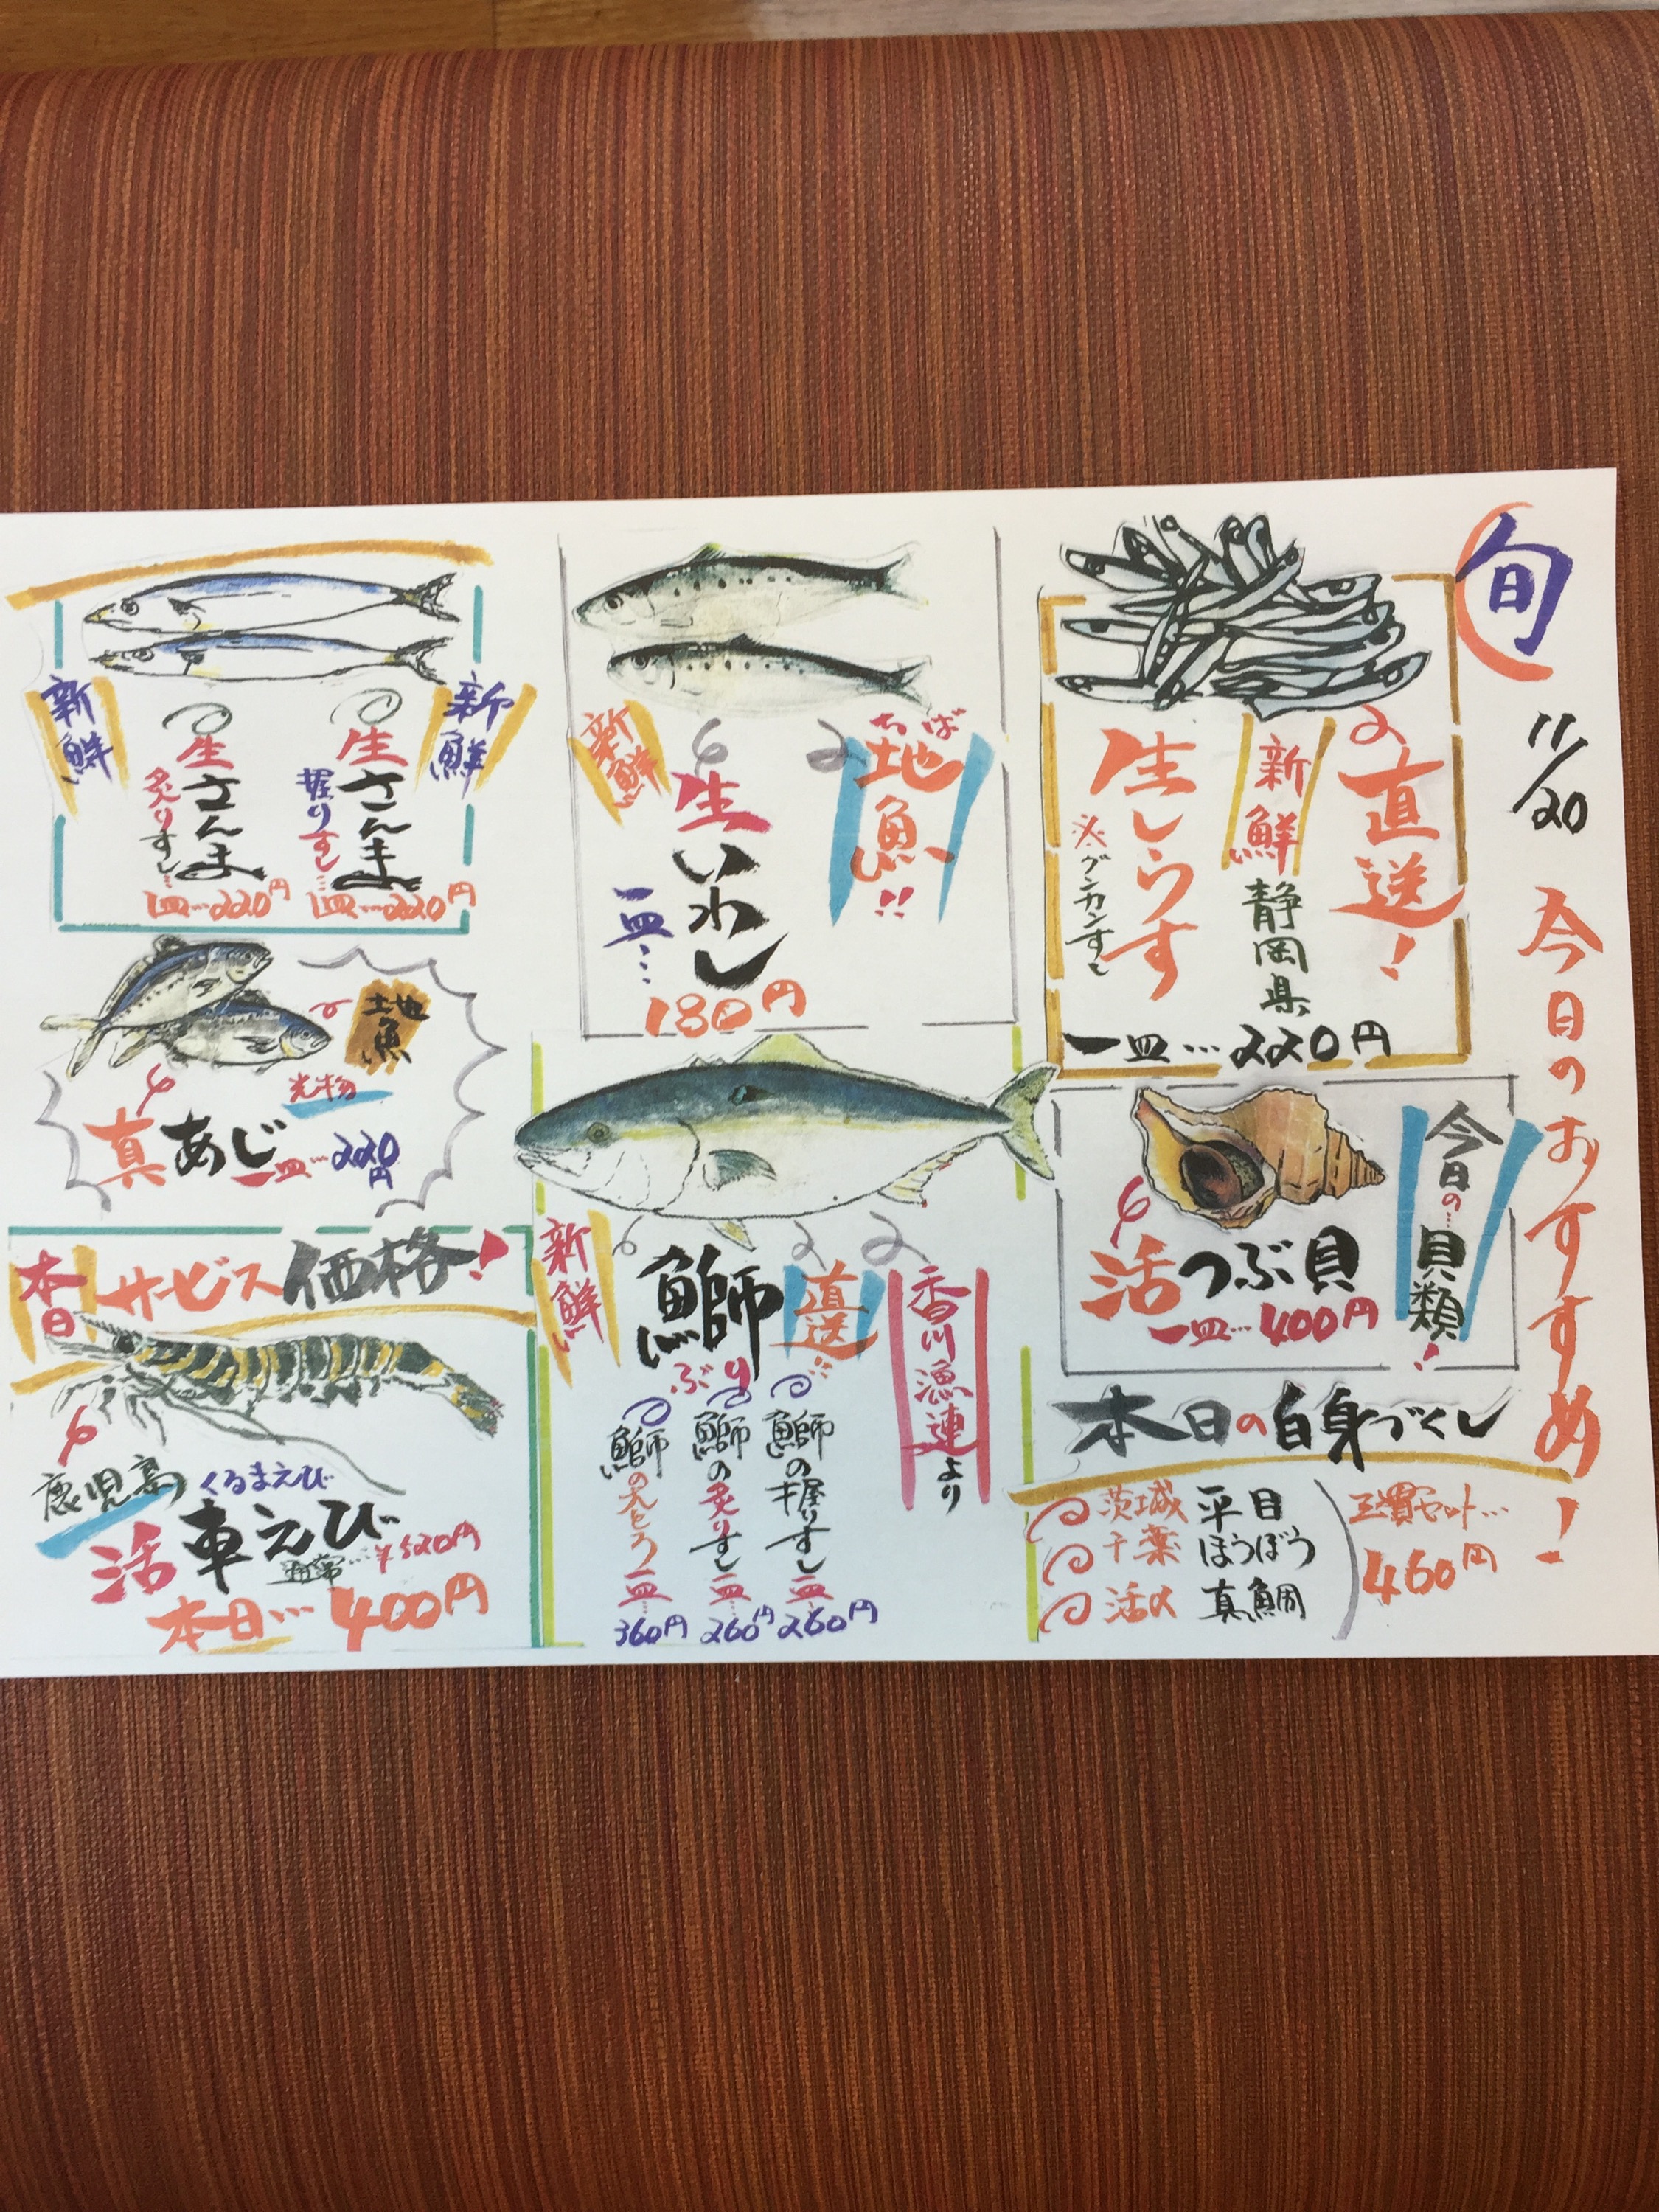 旬
11/20
今日のおすすめ!
直送!
新鮮
静岡県
生しらす
※グンカンすし
一皿…220円
今日の…
貝類!
活つぶ貝
一皿…400円
本日の白身づくし
茨城 平目
千葉 ほうぼう
活〆 真鯛
三貫セット…
460円
ちば
地魚!!
新鮮
生いわし
一皿…
180円
香川漁連より
直送!!
新鮮
鰤
ぶり
鰤の握りすし
一皿…
260円
鰤の炙りすし
一皿…
260円
鰤の大とろ
一皿…
360円
新鮮
生さんま
握りすし…
一皿…220円
生さんま
炙りすし…
一皿…220円
新鮮
地魚
光物
真あじ
一皿…220円
本日
サービス価格!
鹿児島
くるまえび
活車えび
通常…¥520円
本日…400円